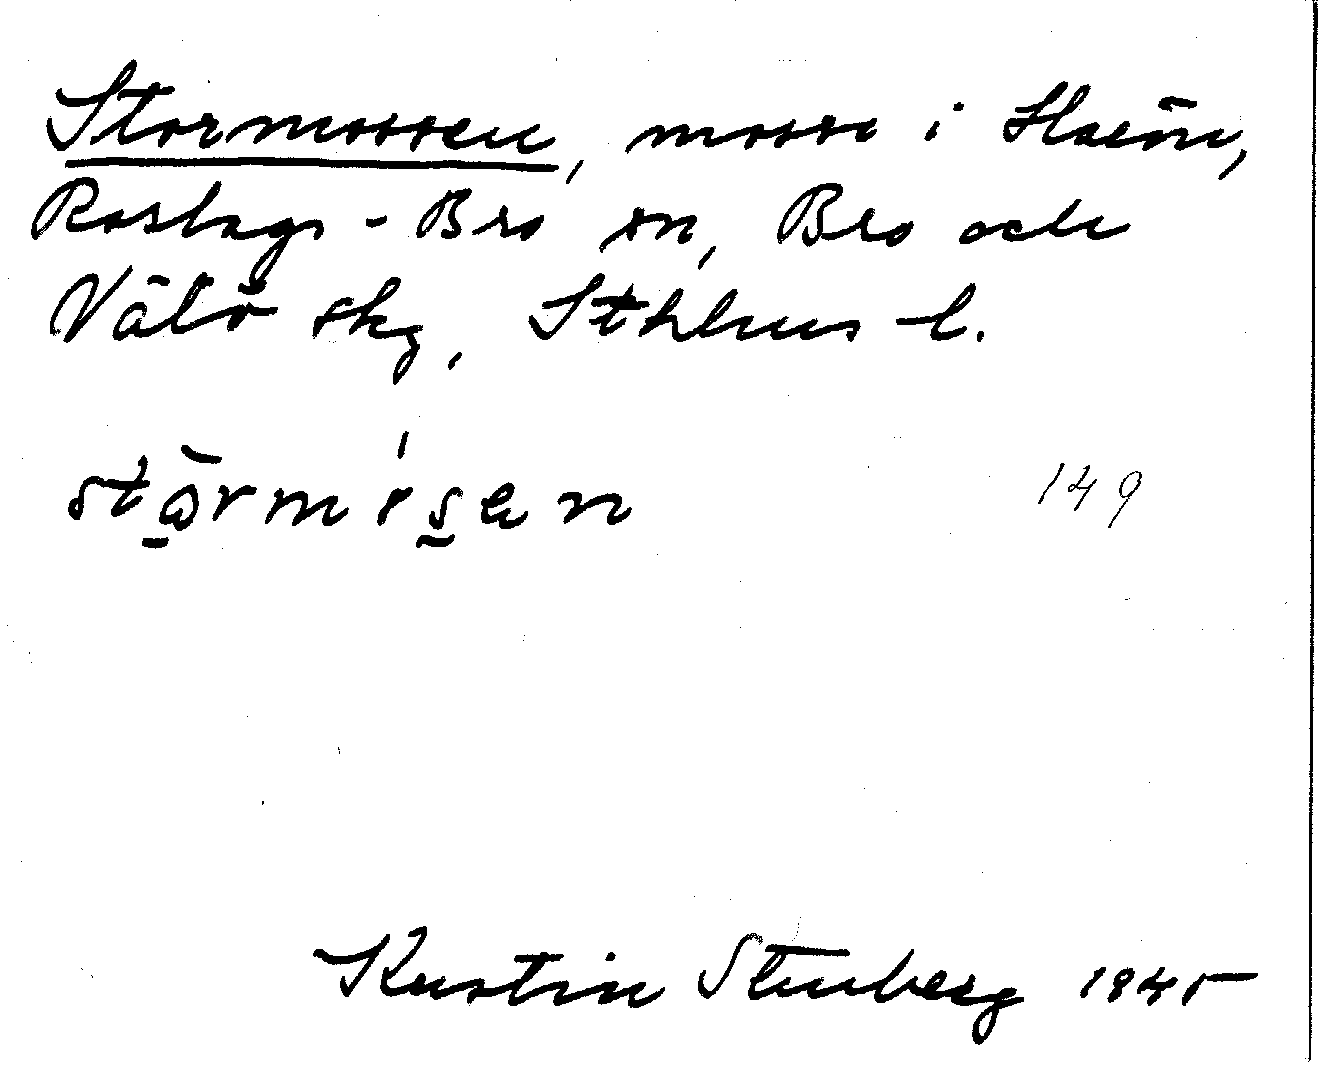 Stormossen, mosse i
Roslags-Bro sn, Bro och
Vätö skg, Sthlms l.
149
Kerstin Stenberg 1945